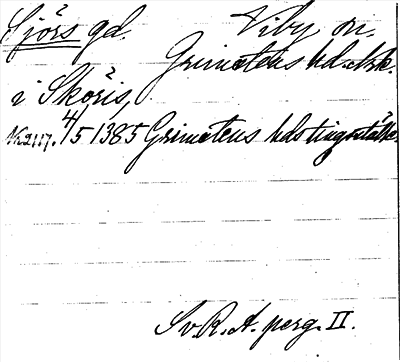 Sjörs gd. Viby sn.
Grimstens hd. Nrk.
i Sköris,
Nr 2117. 4/5 1385 Grimstens hds tingställe.
Sv. R. A. perg. II.